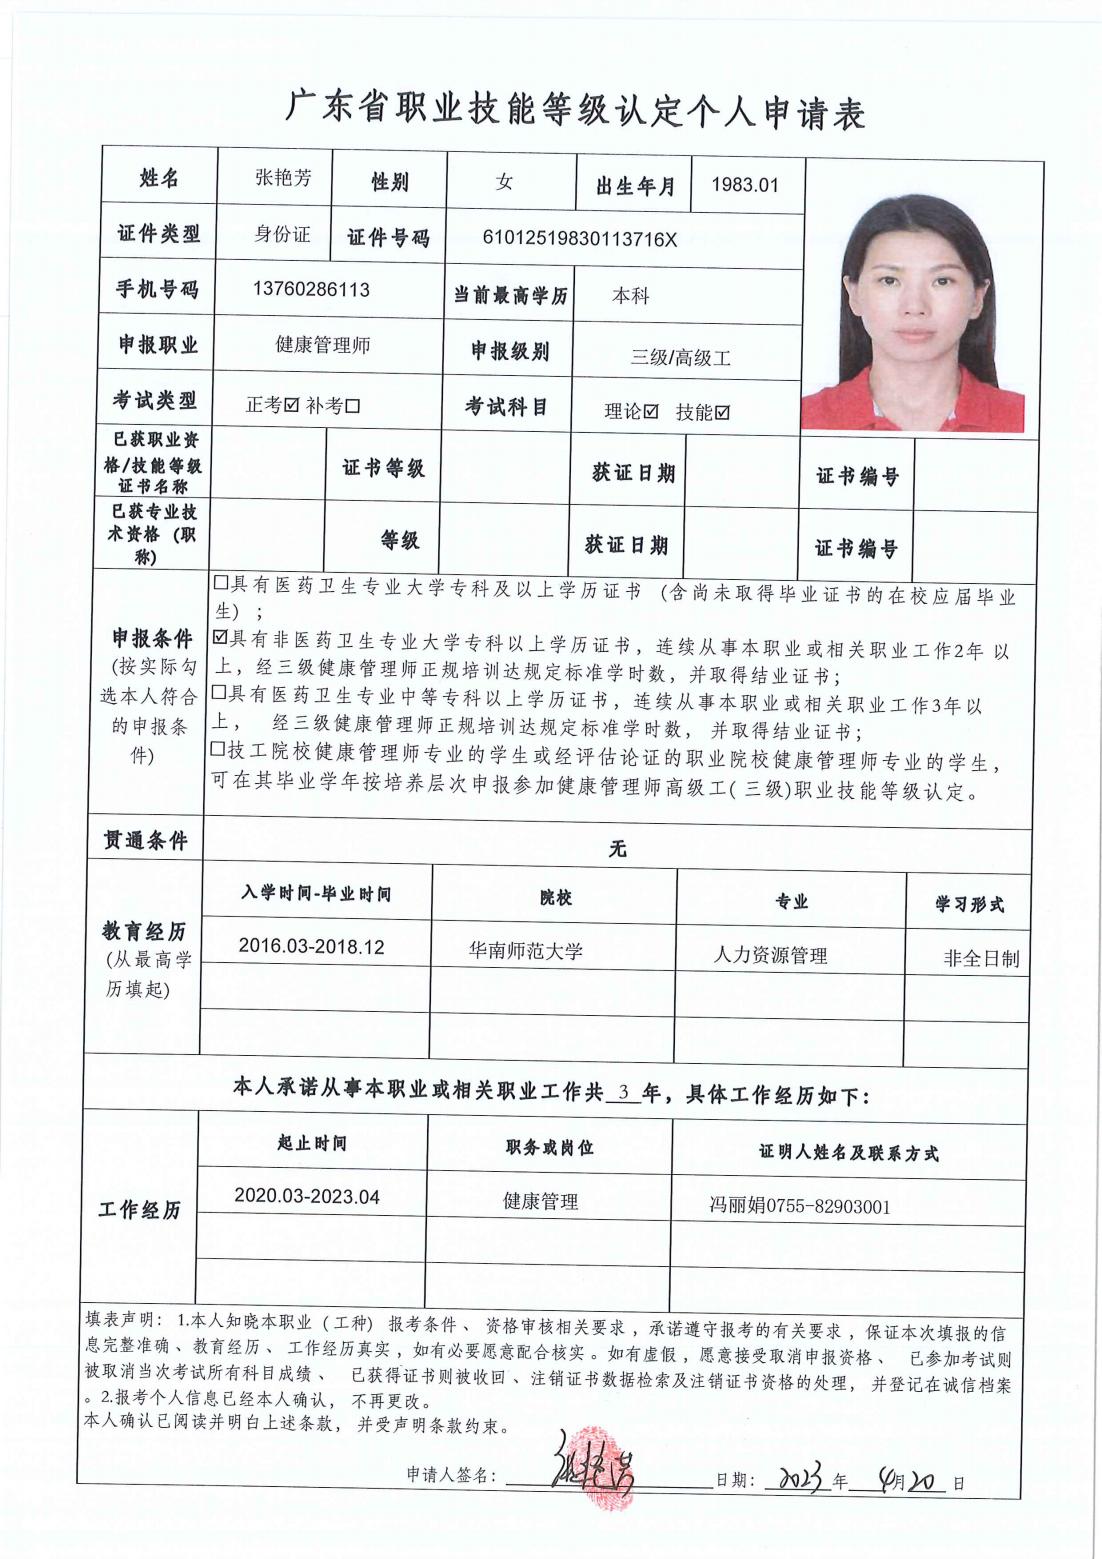 广东省职业技能等级认定个人申请表
姓名 张艳芳 性别 女 出生年月 1983.01
证件类型 身份证 证件号码 61012519830113716X
手机号码 13760286113 当前最高学历 本科
申报职业 健康管理师 申报级别 三级/高级工
考试类型 正考☑ 补考☐ 考试科目 理论☑ 技能☑
已获职业资
格/技能等级
证书名称 证书等级 获证日期 证书编号
已获专业技
术资格（职
称） 等级 获证日期 证书编号
申报条件
(按实际勾
选本人符合
的申报条
件)
☐具有医药卫生专业大学专科及以上学历证书（含尚未取得毕业证书的在校应届毕业
生）；
☑具有非医药卫生专业大学专科以上学历证书，连续从事本职业或相关职业工作2年 以
上，经三级健康管理师正规培训达规定标准学时数，并取得结业证书；
☐具有医药卫生专业中等专科以上学历证书，连续从事本职业或相关职业工作3年以
上， 经三级健康管理师正规培训达规定标准学时数， 并取得结业证书；
☐技工院校健康管理师专业的学生或经评估论证的职业院校健康管理师专业的学生，
可在其毕业学年按培养层次申报参加健康管理师高级工( 三级)职业技能等级认定。
贯通条件 无
教育经历
(从最高学
历填起)
入学时间-毕业时间 院校 专业 学习形式
2016.03-2018.12 华南师范大学 人力资源管理 非全日制
本人承诺从事本职业或相关职业工作共 3 年，具体工作经历如下：
工作经历
起止时间 职务或岗位 证明人姓名及联系方式
2020.03-2023.04 健康管理 冯丽娟0755-82903001
填表声明： 1.本人知晓本职业（工种）报考条件、 资格审核相关要求，承诺遵守报考的有关要求，保证本次填报的信
息完整准确、教育经历、 工作经历真实，如有必要愿意配合核实。如有虚假，愿意接受取消申报资格、 已参加考试则
被取消当次考试所有科目成绩、 已获得证书则被收回、注销证书数据检索及注销证书资格的处理， 并登记在诚信档案
。2.报考个人信息已经本人确认， 不再更改。
本人确认已阅读并明白上述条款， 并受声明条款约束。
申请人签名： 张艳芳 日期： 2023 年 4月20 日